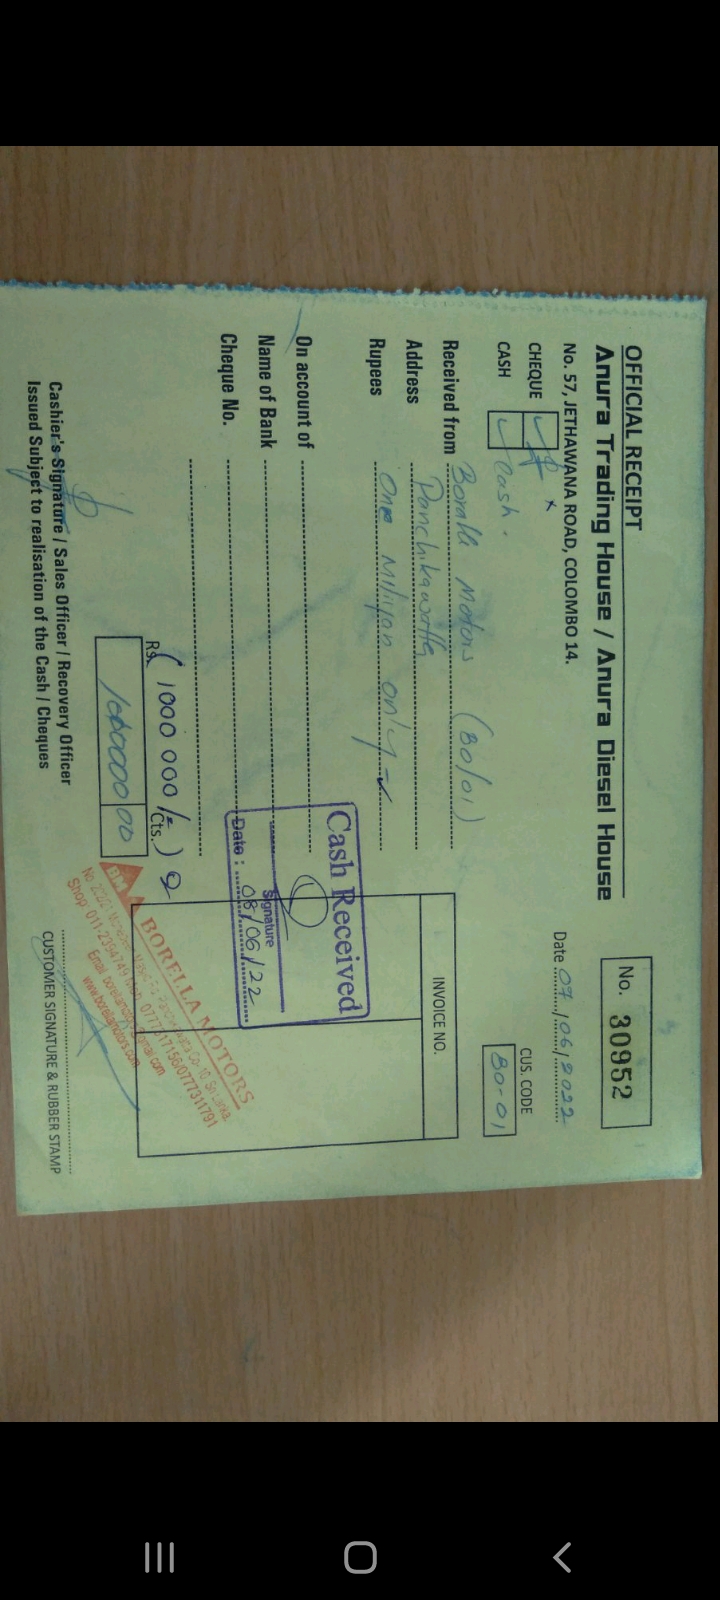 OFFICIAL RECEIPT
Anura Trading House / Anura Diesel House
No. 57, JETHAWANA ROAD, COLOMBO 14.
No. 30952
Date 07/06/2022
CHEQUE
CASH Cash.
CUS. CODE
BO-01
Received from Borella Motors (BO/01)
Address Panchikawatta
Rupees One Miliyon only
INVOICE NO.
On account of
Name of Bank
Cheque No.
Cash Received
Signature
Date : 08/06/22
(1000 000/=)
Rs. Cts.
1000000 00
BM BORELLA MOTORS
Shop 011-2394749
Email
www.borellamotors.com
Cashier's Signature / Sales Officer / Recovery Officer
Issued Subject to realisation of the Cash / Cheques
CUSTOMER SIGNATURE & RUBBER STAMP